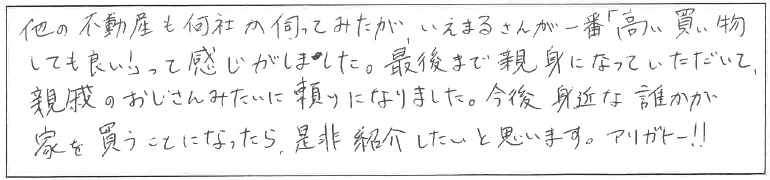 他の不動産も何社か伺ってみたが、いえまるさんが一番「高い買い物
しても良い!」って感じがしました。最後まで親身になっていただいて、
親戚のおじさんみたいに頼りになりました。今後身近な誰かが
家を買うことになったら、是非紹介したいと思います。アリガトー!!